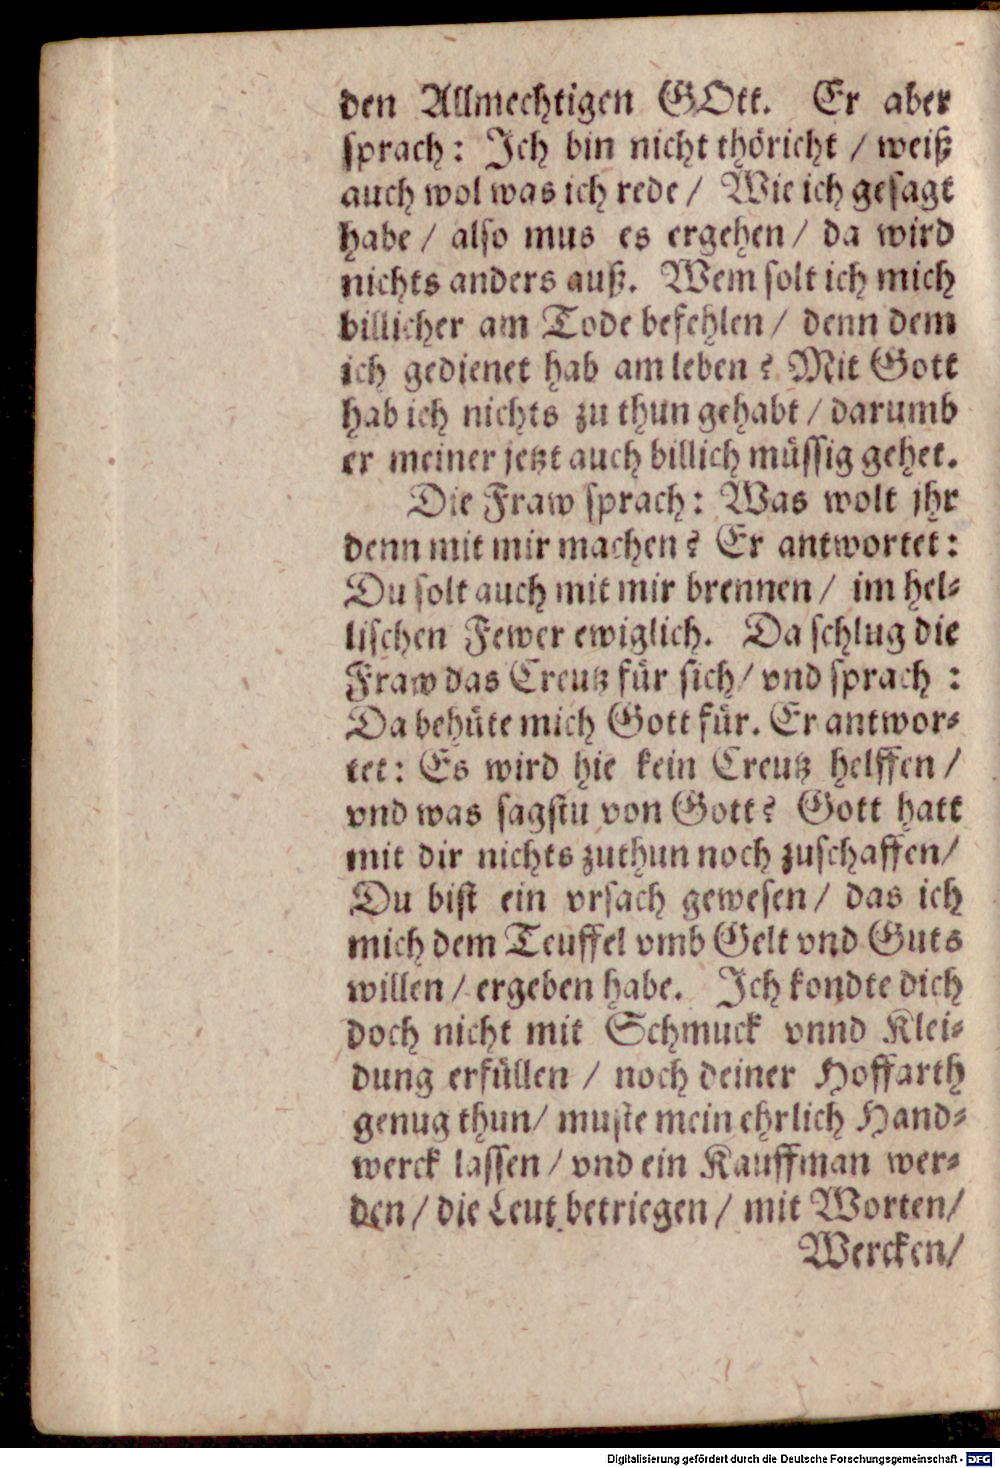 den Allmechtigen GOtt. Er aber
sprach: Ich bin nicht thöricht / weiß
auch wol was ich rede / Wie ich gesagt
habe / also mus es ergehen / da wird
nichts anders auß. Wem solt ich mich
billicher am Tode befehlen / denn dem
ich gedienet hab am leben? Mit Gott
hab ich nichts zu thun gehabt / darumb
er meiner jetzt auch billich müssig gehet.
Die Fraw sprach: Was wolt jhr
denn mit mir machen? Er antwortet:
Du solt auch mit mir brennen / im hel-
lischen Fewer ewiglich. Da schlug die
Fraw das Creutz für sich / vnd sprach:
Da behüte mich Gott für. Er antwor-
tet: Es wird hie kein Creutz helffen /
vnd was sagstu von Gott? Gott hatt
mit dir nichts zuthun noch zuschaffen /
Du bist ein vrsach gewesen / das ich
mich dem Teuffel vmb Gelt vnd Guts
willen / ergeben habe. Ich kondte dich
doch nicht mit Schmuck vnnd Klei-
dung erfüllen / noch deiner Hoffarth
genug thun / muste mein ehrlich Hand-
werck lassen / vnd ein Kauffman wer-
den / die Leut betriegen / mit Worten /
Wercken /
Digitalisierung gefördert durch die Deutsche Forschungsgemeinschaft - DFG